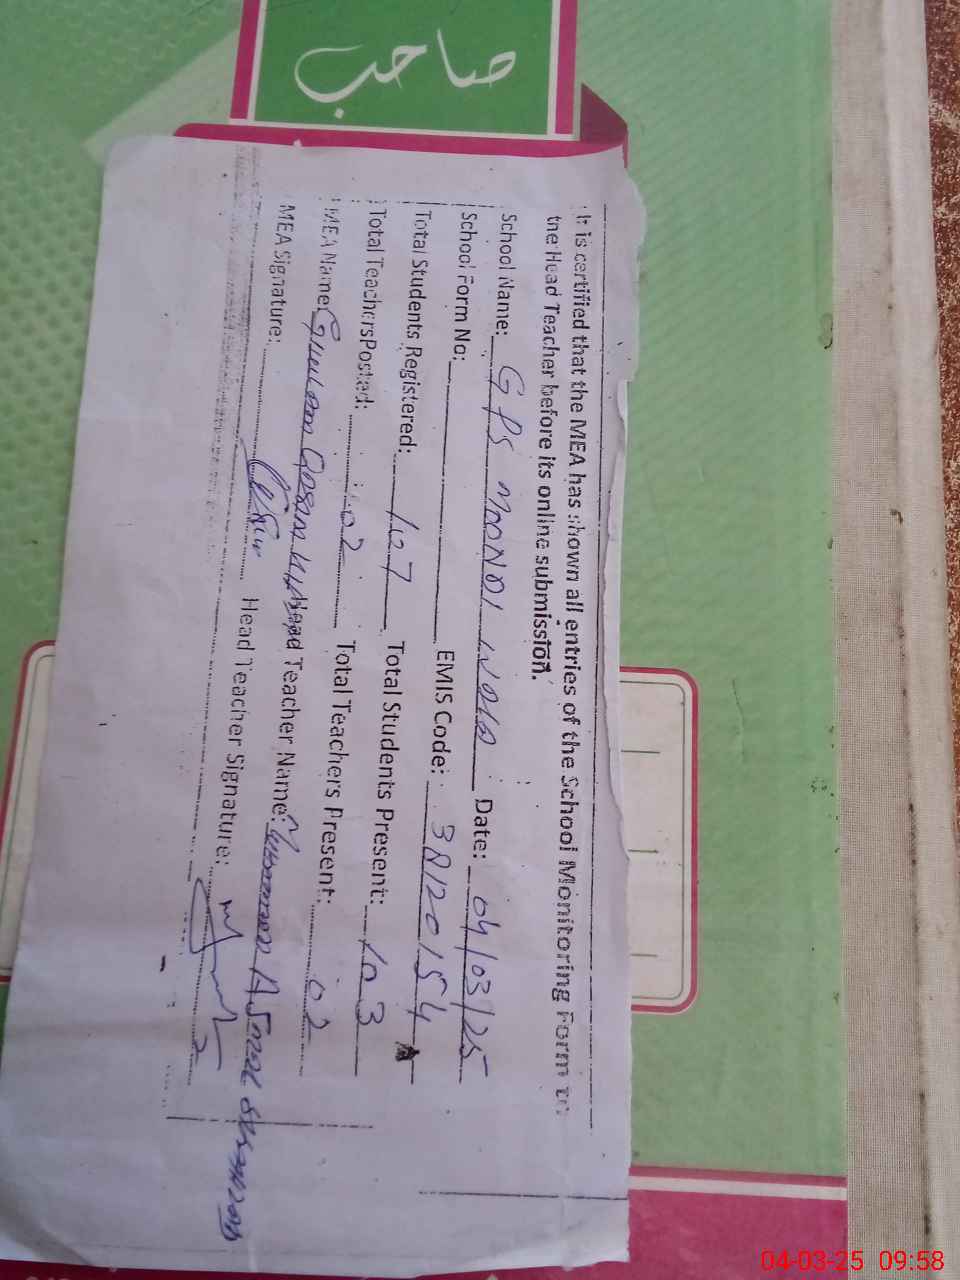 صاحب
It is certified that the MEA has shown all entries of the School Monitoring Form to
the Head Teacher before its online submission.
School Name: GPS MOONDI Date: 04/03/25
School Form No: EMIS Code: 38120154
Total Students Registered: 107 Total Students Present: 103
Total Teachers Posted: 02 Total Teachers Present: 02
MEA Name: Head Teacher Name:
MEA Signature: Head Teacher Signature:
04-03-25 09:58